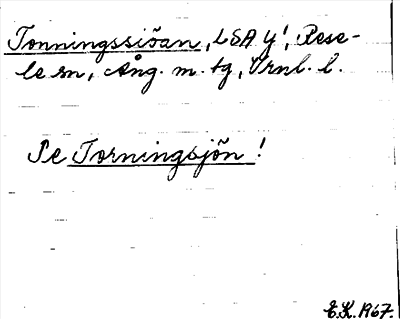 Tonningssiöan, LSA y!, Rese-
le sn, Ång. m. tg, Vrnl. l.
Se Torningsjön!
E.K. 1967.